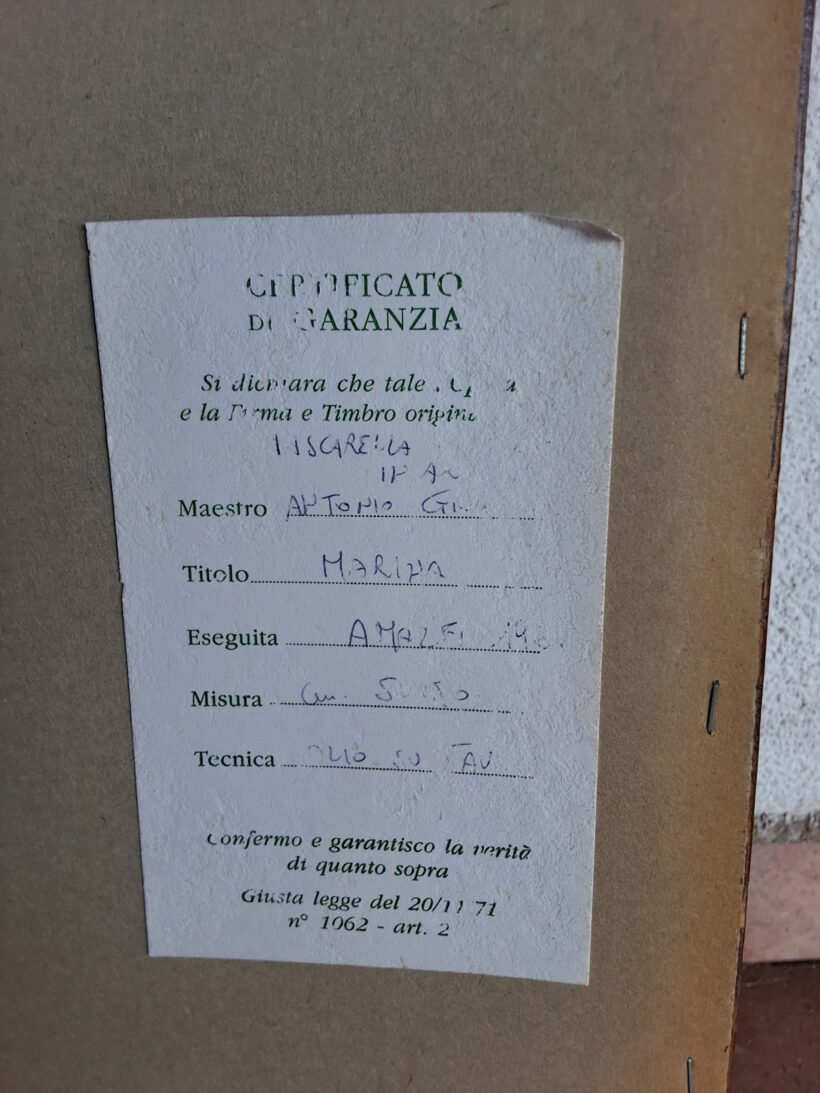 CERTIFICATO
DI GARANZIA
Si dichiara che tale
e la Firma e Timbro
Maestro ANTONIO
Titolo MARINA
Eseguita AMALFI
Misura cm.
Tecnica OLIO SU
Confermo e garantisco la verità
di quanto sopra
Giusta legge del 20/11/71
n° 1062 - art. 2